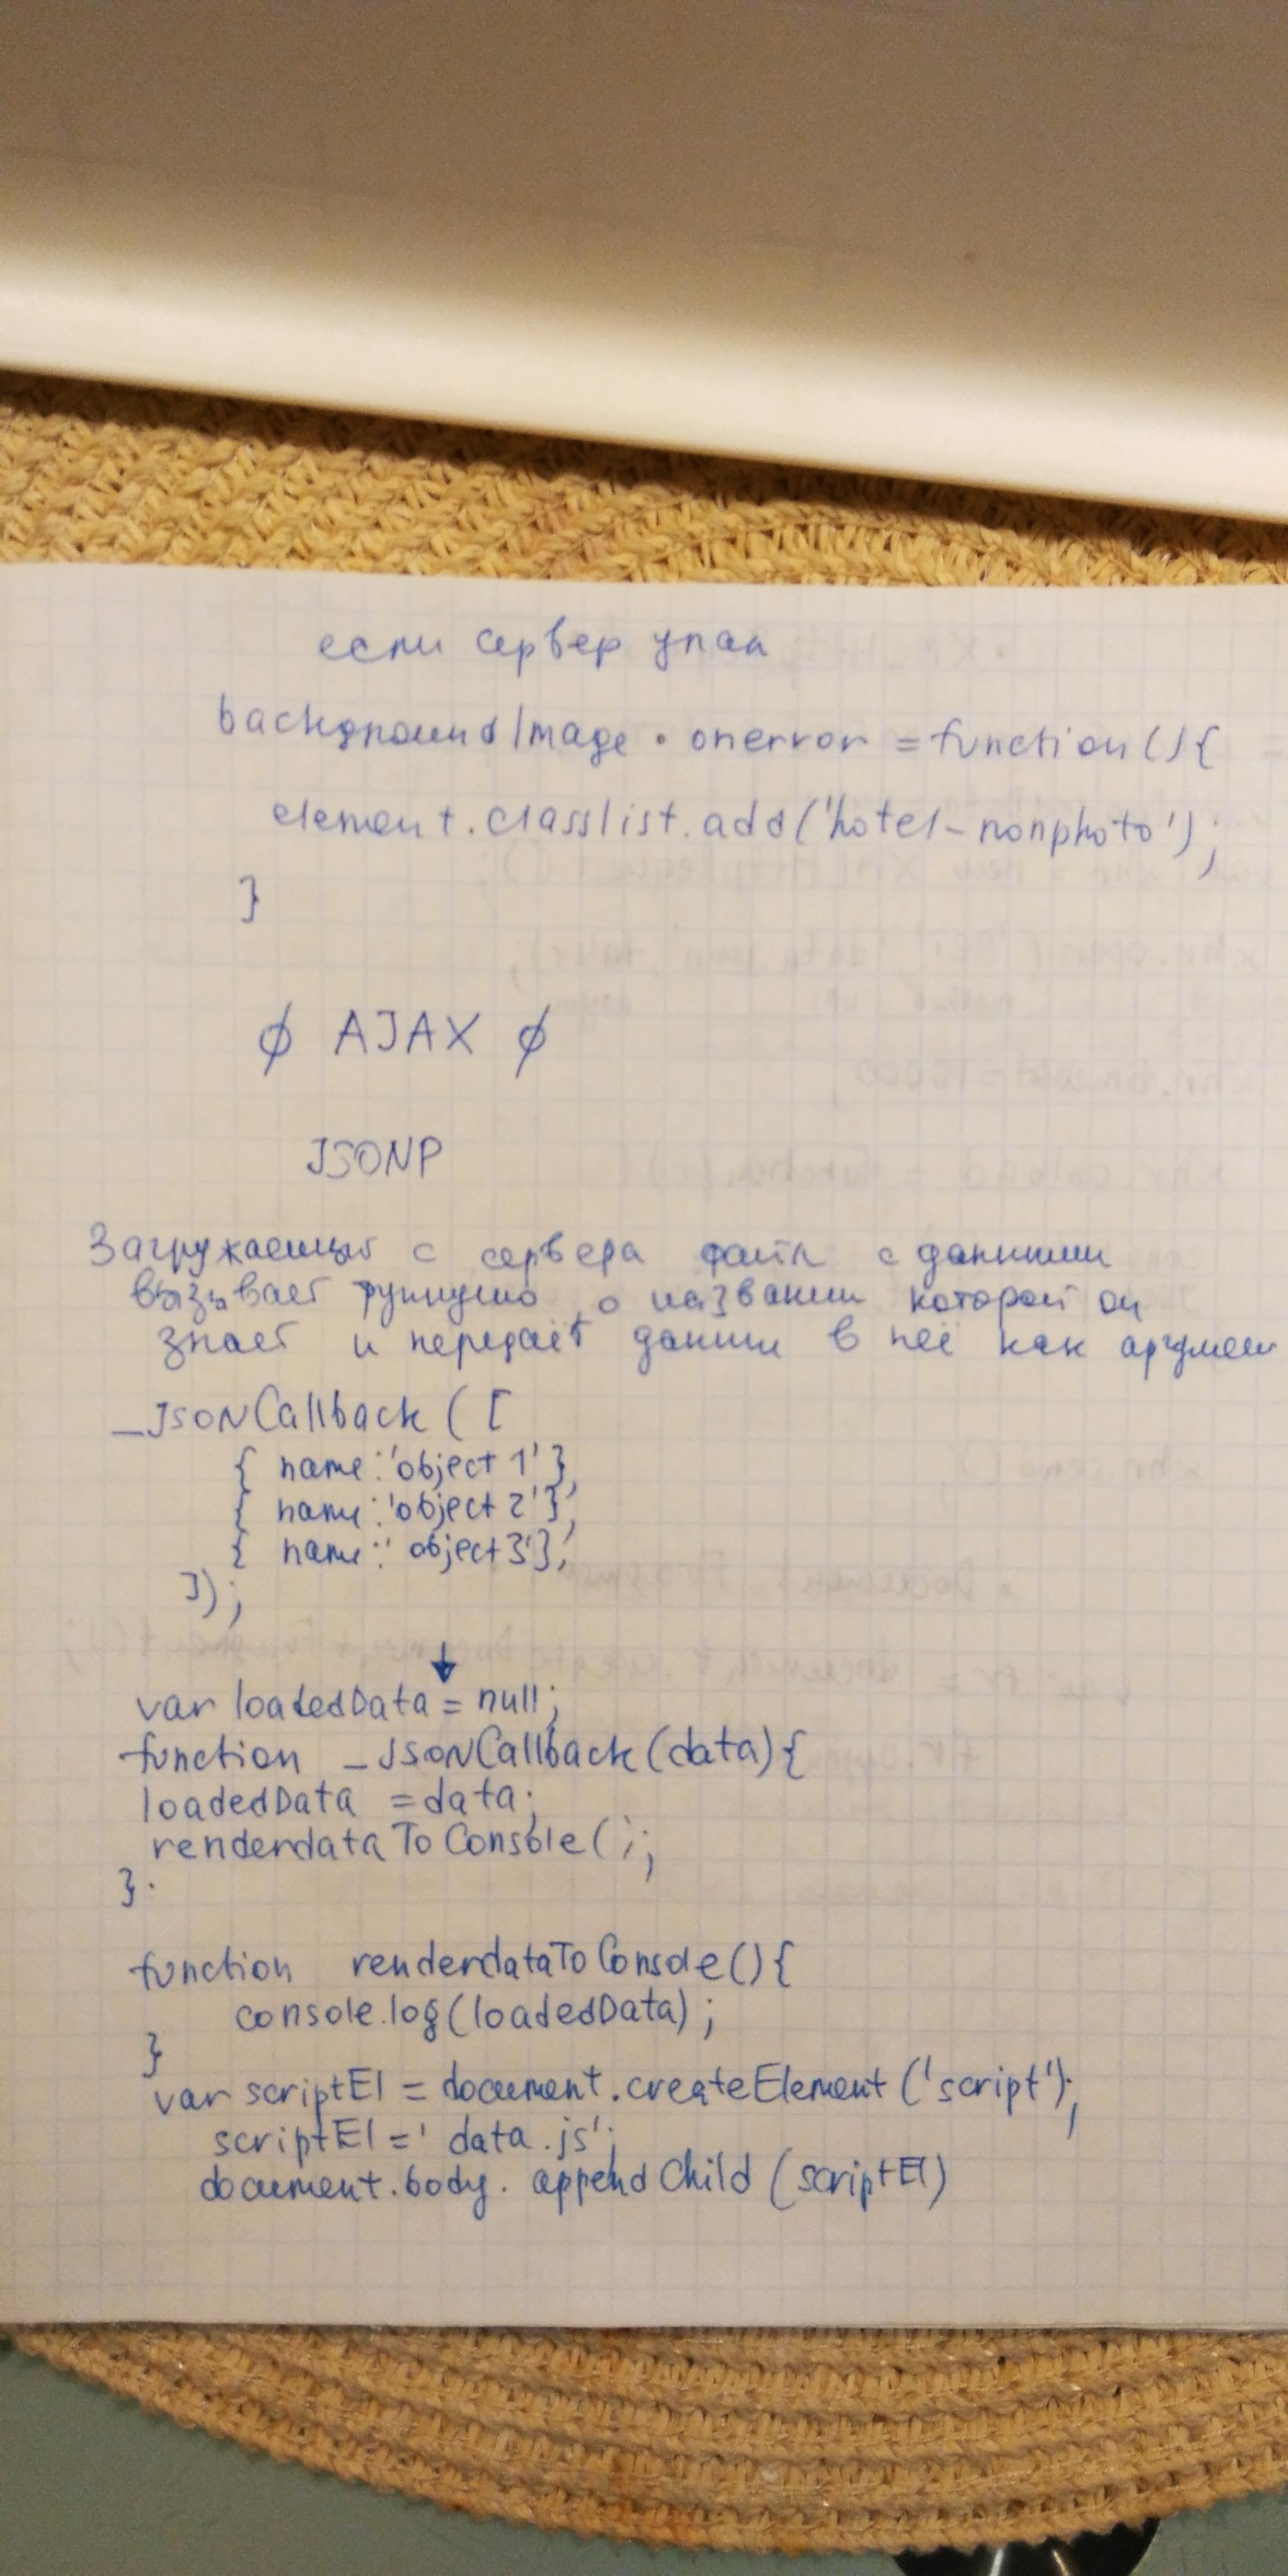 если сервер упал
backgroundImage . onerror = function(){
element.classlist.add('hotel-nonphoto');
}
ϕ AJAX ϕ
JSONP
Загружаемый с сервера файл с данными
вызывает функцию, о названии которой он
знает и передаёт данные в неё как аргумен
_JSONCallback ([
{ name:'object 1'},
{ name:'object 2'},
{ name:'object3'},
]);
↓
var loadedData = null;
function _JSONCallback(data){
loadedData = data;
renderdataToConsole();
}.
function renderdataToConsole(){
console.log(loadedData);
}
var scriptEl = document.createElement('script');
scriptEl = 'data.js';
document.body. appendChild (scriptEl)